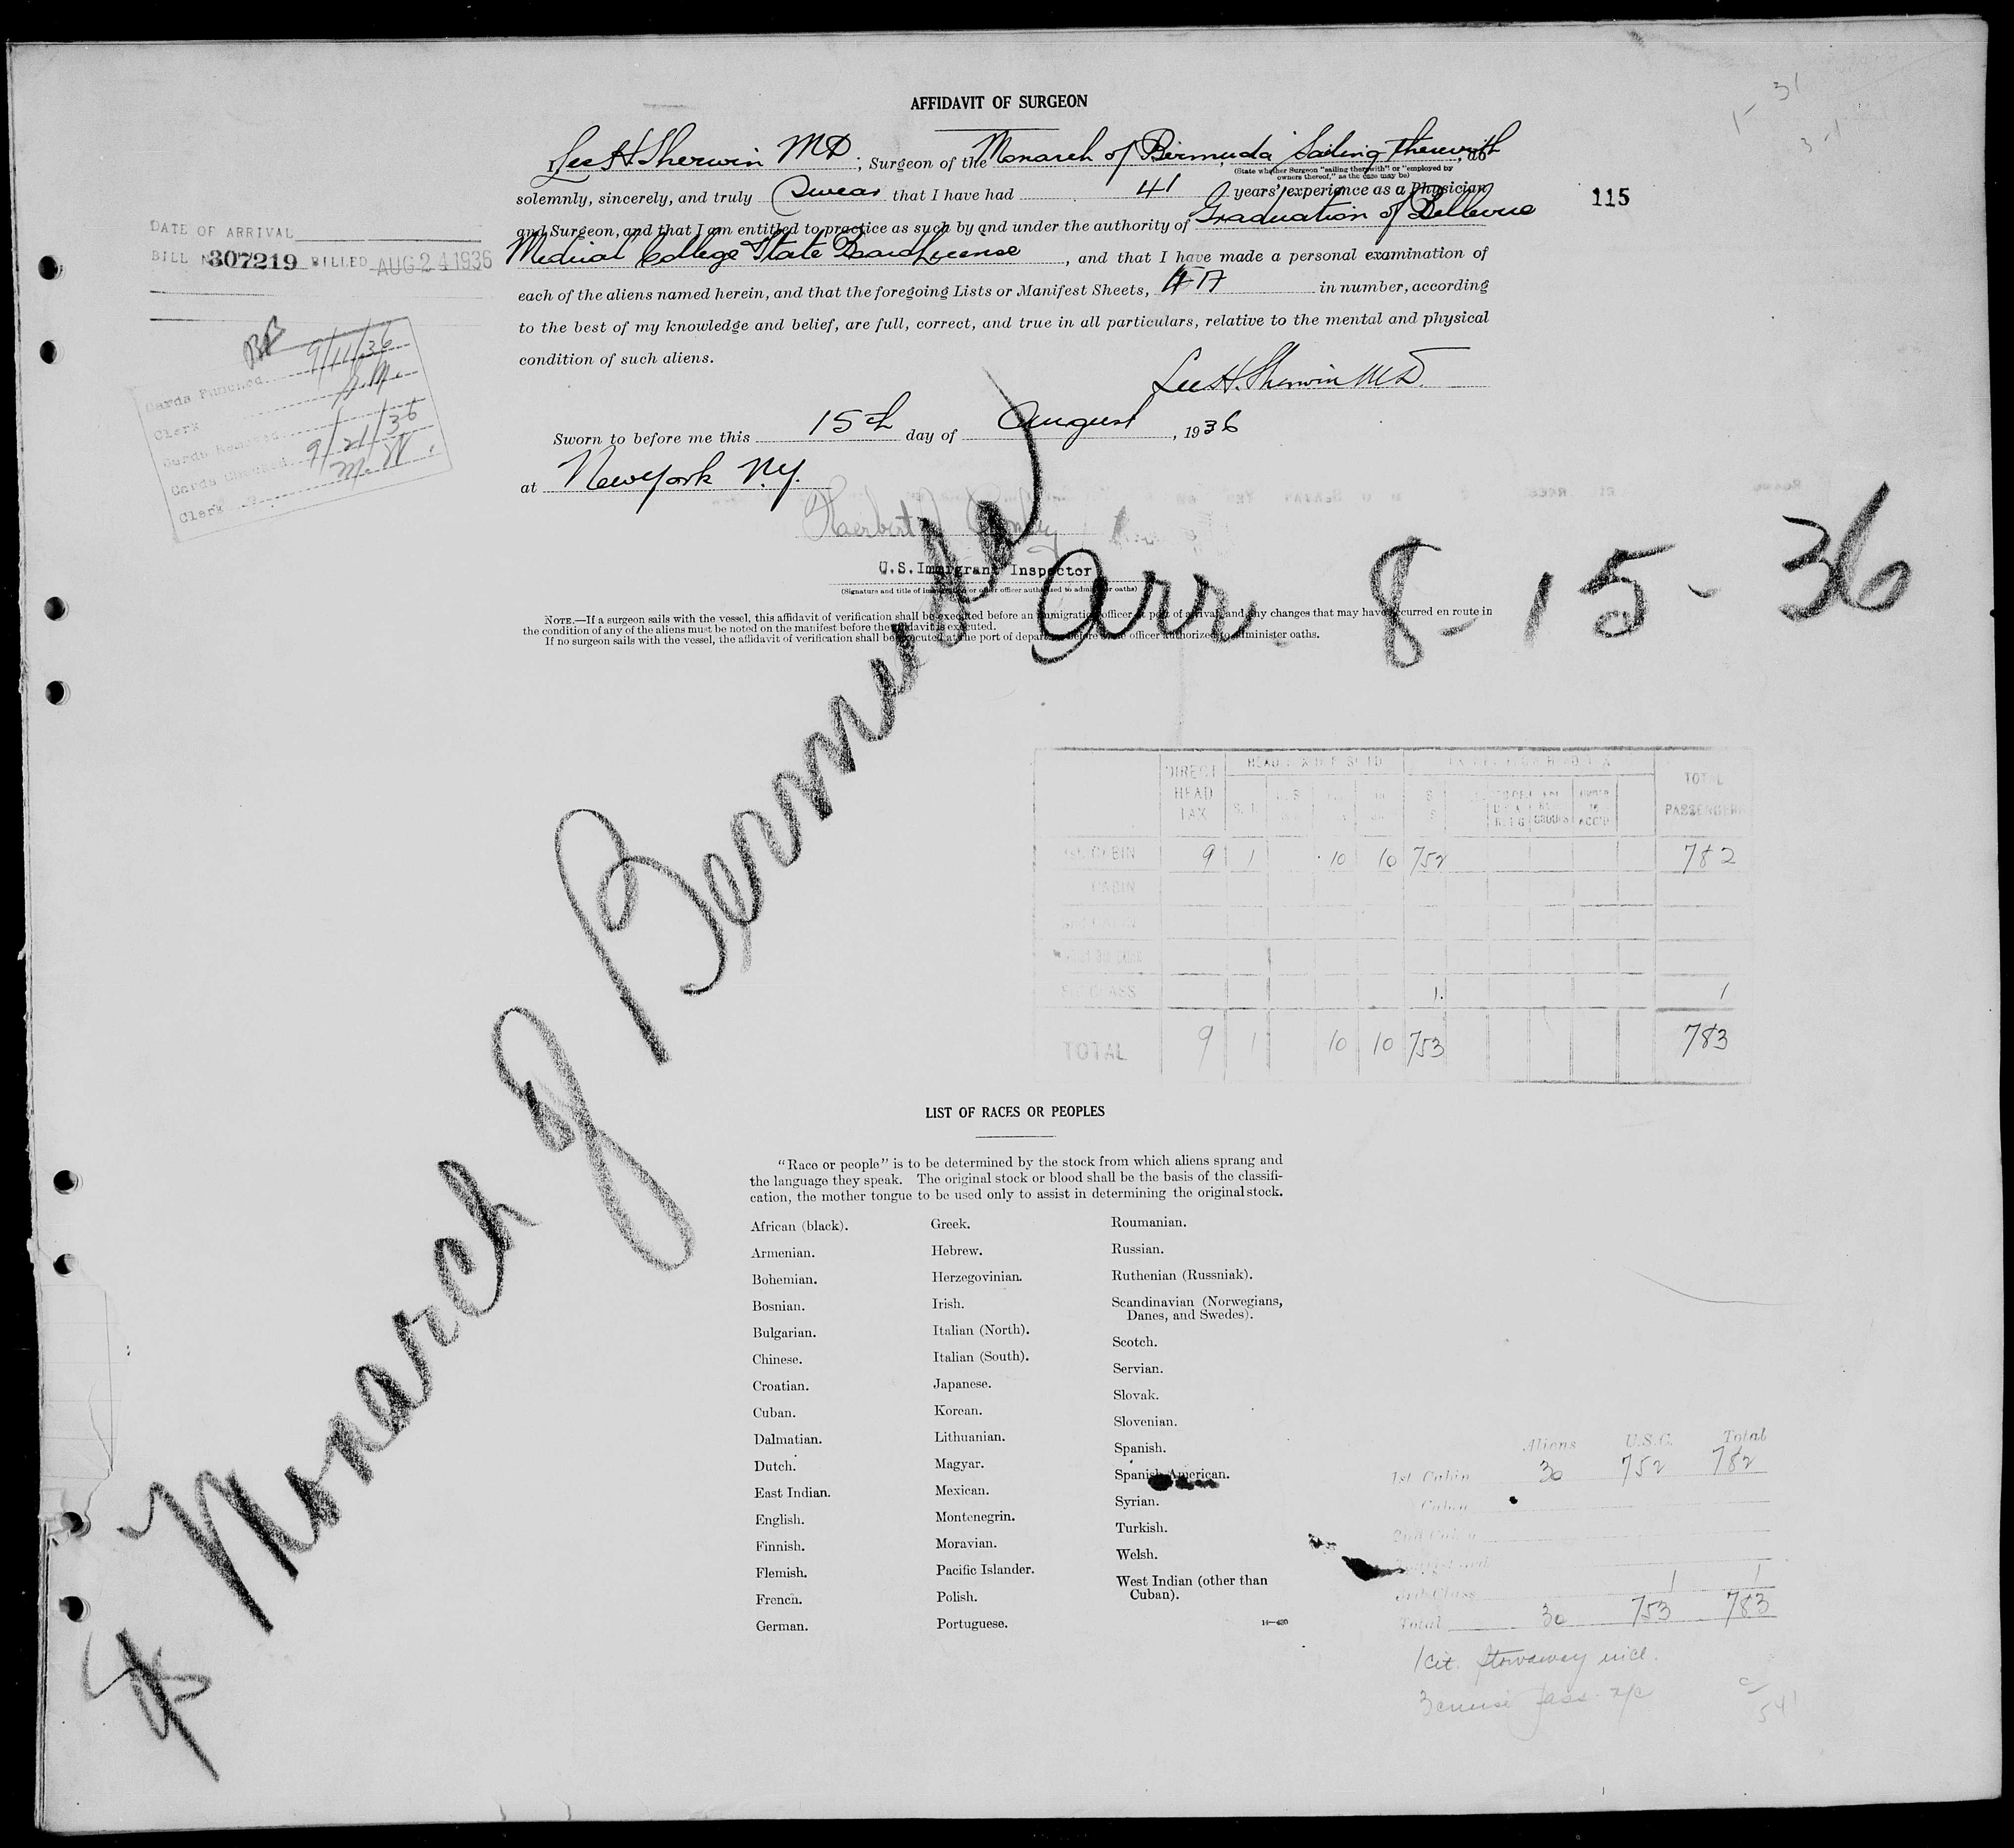 AFFIDAVIT OF SURGEON
I, Lee H. Sherwin MD, Surgeon of the Monarch of Bermuda Sailing therewith, do
(State whether Surgeon "sailing therewith" or "employed by
owners thereof," as the case may be)
solemnly, sincerely, and truly Swear that I have had 41 years' experience as a Physician
115
and Surgeon, and that I am entitled to practice as such by and under the authority of Graduation of Bellevue
Medical College State Board License, and that I have made a personal examination of
each of the aliens named herein, and that the foregoing Lists or Manifest Sheets, in number, according
to the best of my knowledge and belief, are full, correct, and true in all particulars, relative to the mental and physical
condition of such aliens.
Lee H. Sherwin M.D.
Sworn to before me this 15th day of August, 1936
at New York N.Y.
Herbert
U.S. Immigrant Inspector
(Signature and title of immigration or other officer authorized to administer oaths)
NOTE.—If a surgeon sails with the vessel, this affidavit of verification shall be executed before an immigration officer at port of arrival, and any changes that may have occurred en route in
the condition of any of the aliens must be noted on the manifest before the affidavit is executed.
If no surgeon sails with the vessel, the affidavit of verification shall be executed at the port of departure before an officer authorized to administer oaths.
DATE OF ARRIVAL
BILL No 307219 BILLED AUG 24 1936
Cards Punched 9/11/36
Clerk
Cards Checked 9/21/36
Clerk M.W.
Monarch of Bermuda
Arr. 8-15-36
DIRECT HEAD TAX
TOTAL PASSENGERS
1st CABIN 9 1 10 10 752 782
CABIN
3rd CLASS 1 1
TOTAL 9 1 10 10 753 783
LIST OF RACES OR PEOPLES
"Race or people" is to be determined by the stock from which aliens sprang and
the language they speak. The original stock or blood shall be the basis of the classifi-
cation, the mother tongue to be used only to assist in determining the original stock.
African (black).
Armenian.
Bohemian.
Bosnian.
Bulgarian.
Chinese.
Croatian.
Cuban.
Dalmatian.
Dutch.
East Indian.
English.
Finnish.
Flemish.
French.
German.
Greek.
Hebrew.
Herzegovinian.
Irish.
Italian (North).
Italian (South).
Japanese.
Korean.
Lithuanian.
Magyar.
Mexican.
Montenegrin.
Moravian.
Pacific Islander.
Polish.
Portuguese.
Roumanian.
Russian.
Ruthenian (Russniak).
Scandinavian (Norwegians,
Danes, and Swedes).
Scotch.
Servian.
Slovak.
Slovenian.
Spanish.
Spanish American.
Syrian.
Turkish.
Welsh.
West Indian (other than
Cuban).
Aliens U.S.C. Total
1st Cabin 30 752 782
Cabin
2nd Cabin
3rd Class 1 1
Total 30 753 783
1 cit. Stowaway incl.
3 cruise pass.